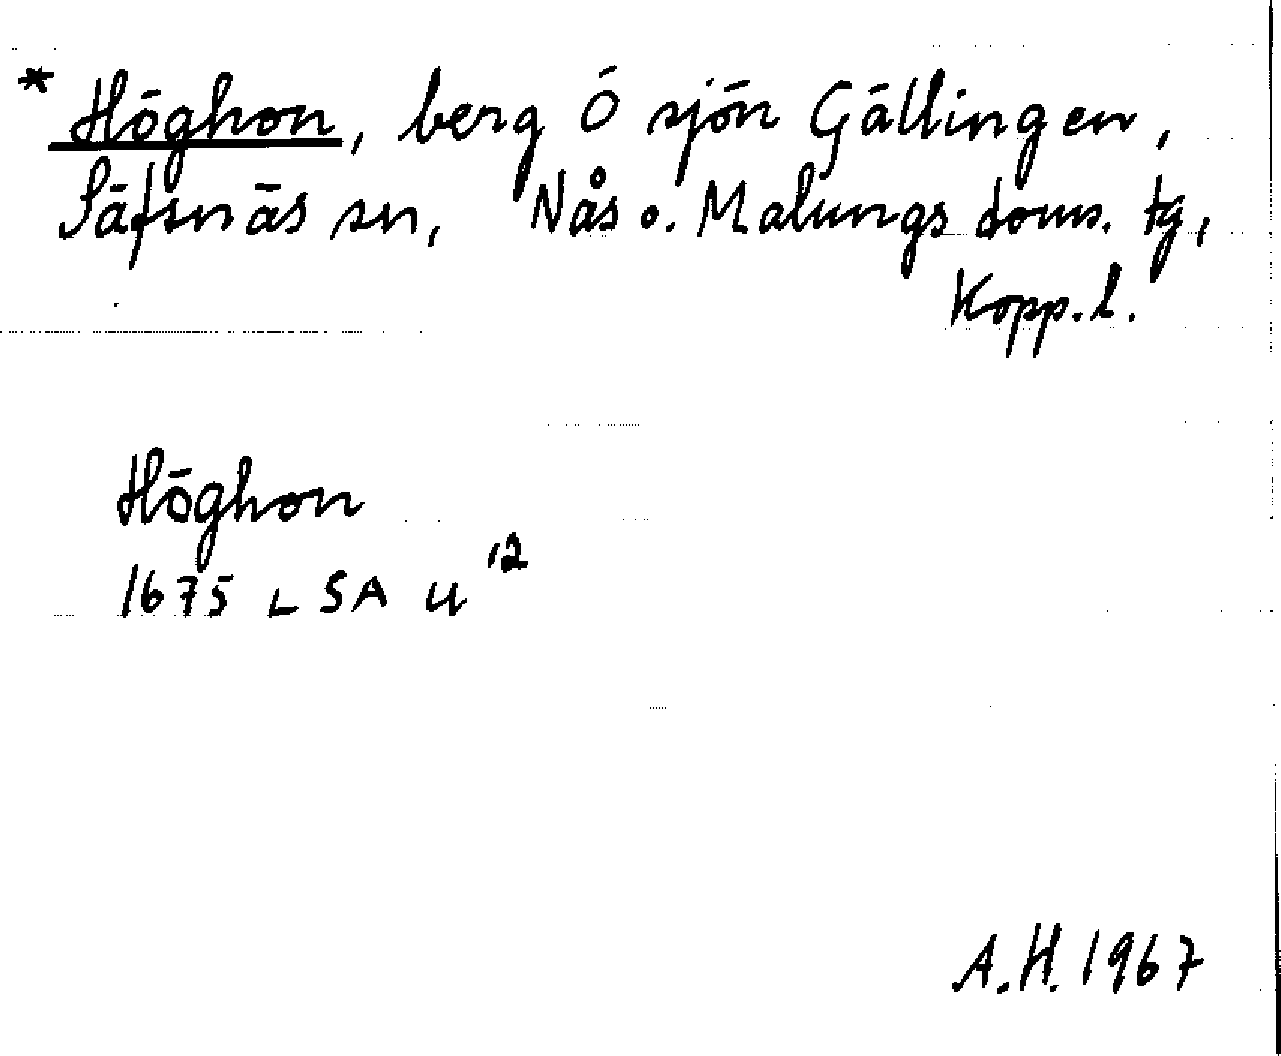 * Höghon, berg Ö sjön Gällingen,
Säfsnäs sn, Nås o. Malungs doms. tg,
Kopp. l.
Höghon
1675 LSA U 12
A.H. 1967